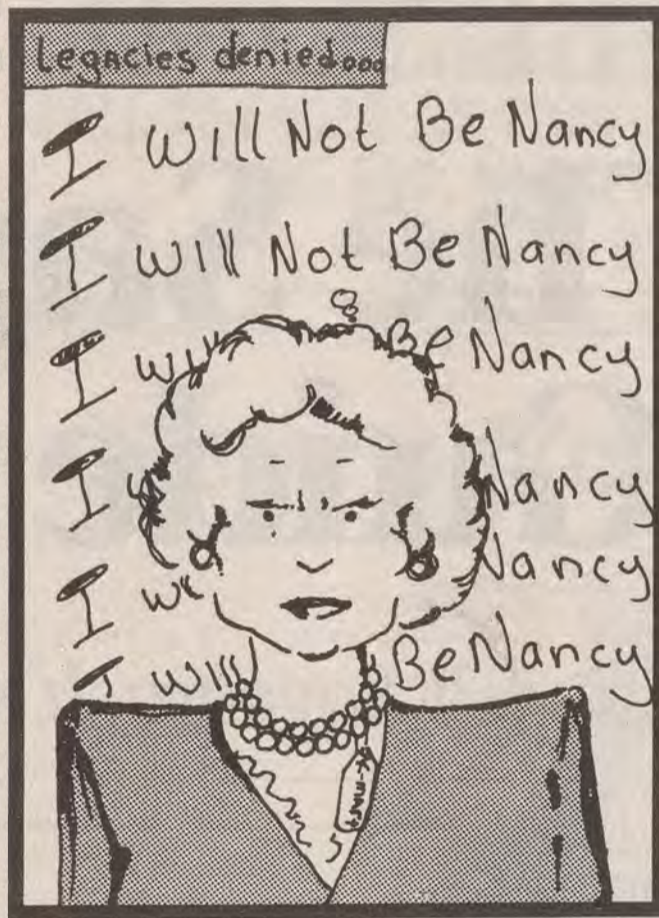 Legacies denied...
I Will Not Be Nancy
I Will Not Be Nancy
I Be Nancy
I Nancy
I Nancy
I Will Be Nancy
K-mart